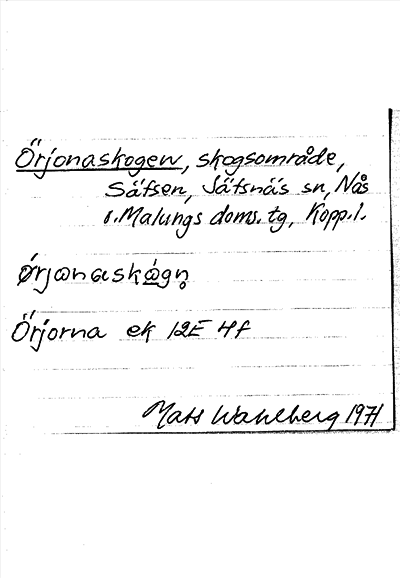 Örjonaskogen, skogsområde,
Sätsen, Jätsnäs sn, Nås
o. Malungs doms. tg, Kopp. l.
ǿrjωnaskὼgn̥
Örjorna ek 12E 4f
Mats Wahlberg 1971